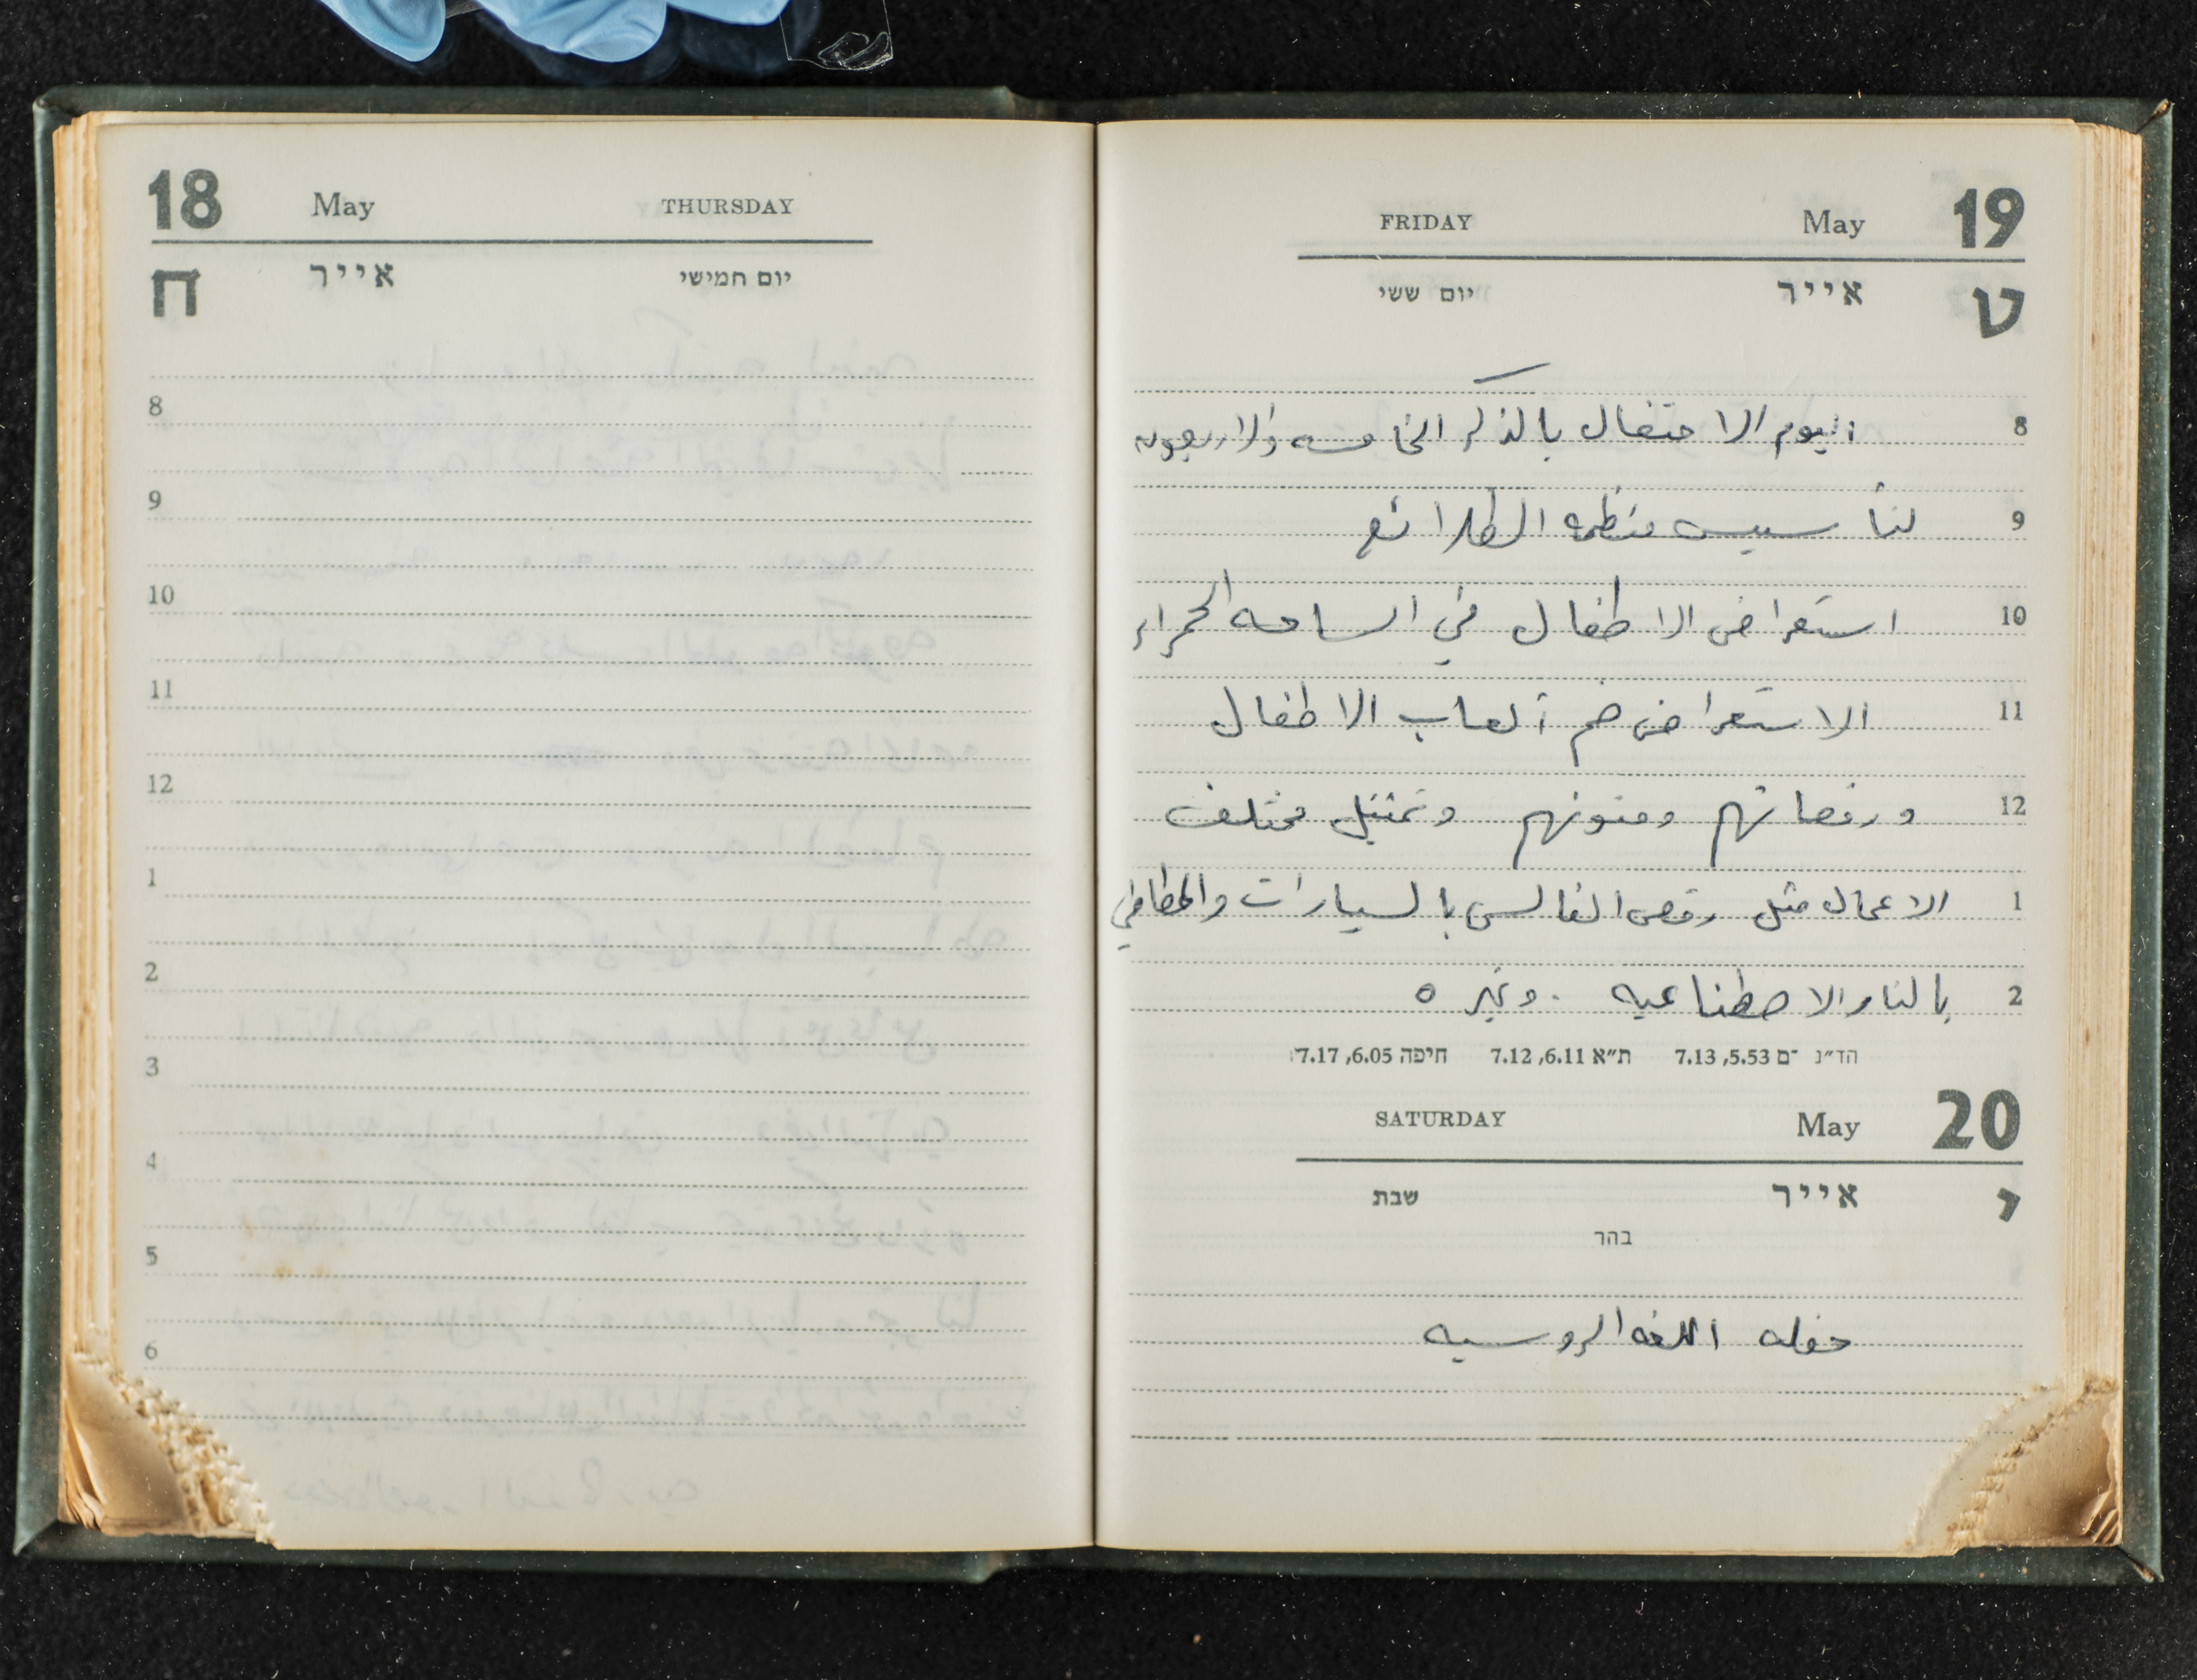 18 May THURSDAY
ח אייר יום חמישי
8
9
10
11
12
1
2
3
4
5
6
FRIDAY May 19
ט אייר יום ששי
8 اليوم الاحتفال بالذكرى الخامسه والاربعون
9 لتأسيس منظمه الطلائع
10 استعراض الاطفال في الساحه الحمراء
11 الاستعراض ضم ألعاب الاطفال
12 ورقصاتهم وفنونهم وتمثيل مختلف
1 الاعمال مثل رقص الفالس بالسيارات والمطافي
2 بالنار الاصطناعيه . وغيره
הד״נ ־ם 5.53, 7.13 ת״א 6.11, 7.12 חיפה 6.05, 7.17
SATURDAY May 20
י אייר שבת
בהר
حفله اللغه الروسيه